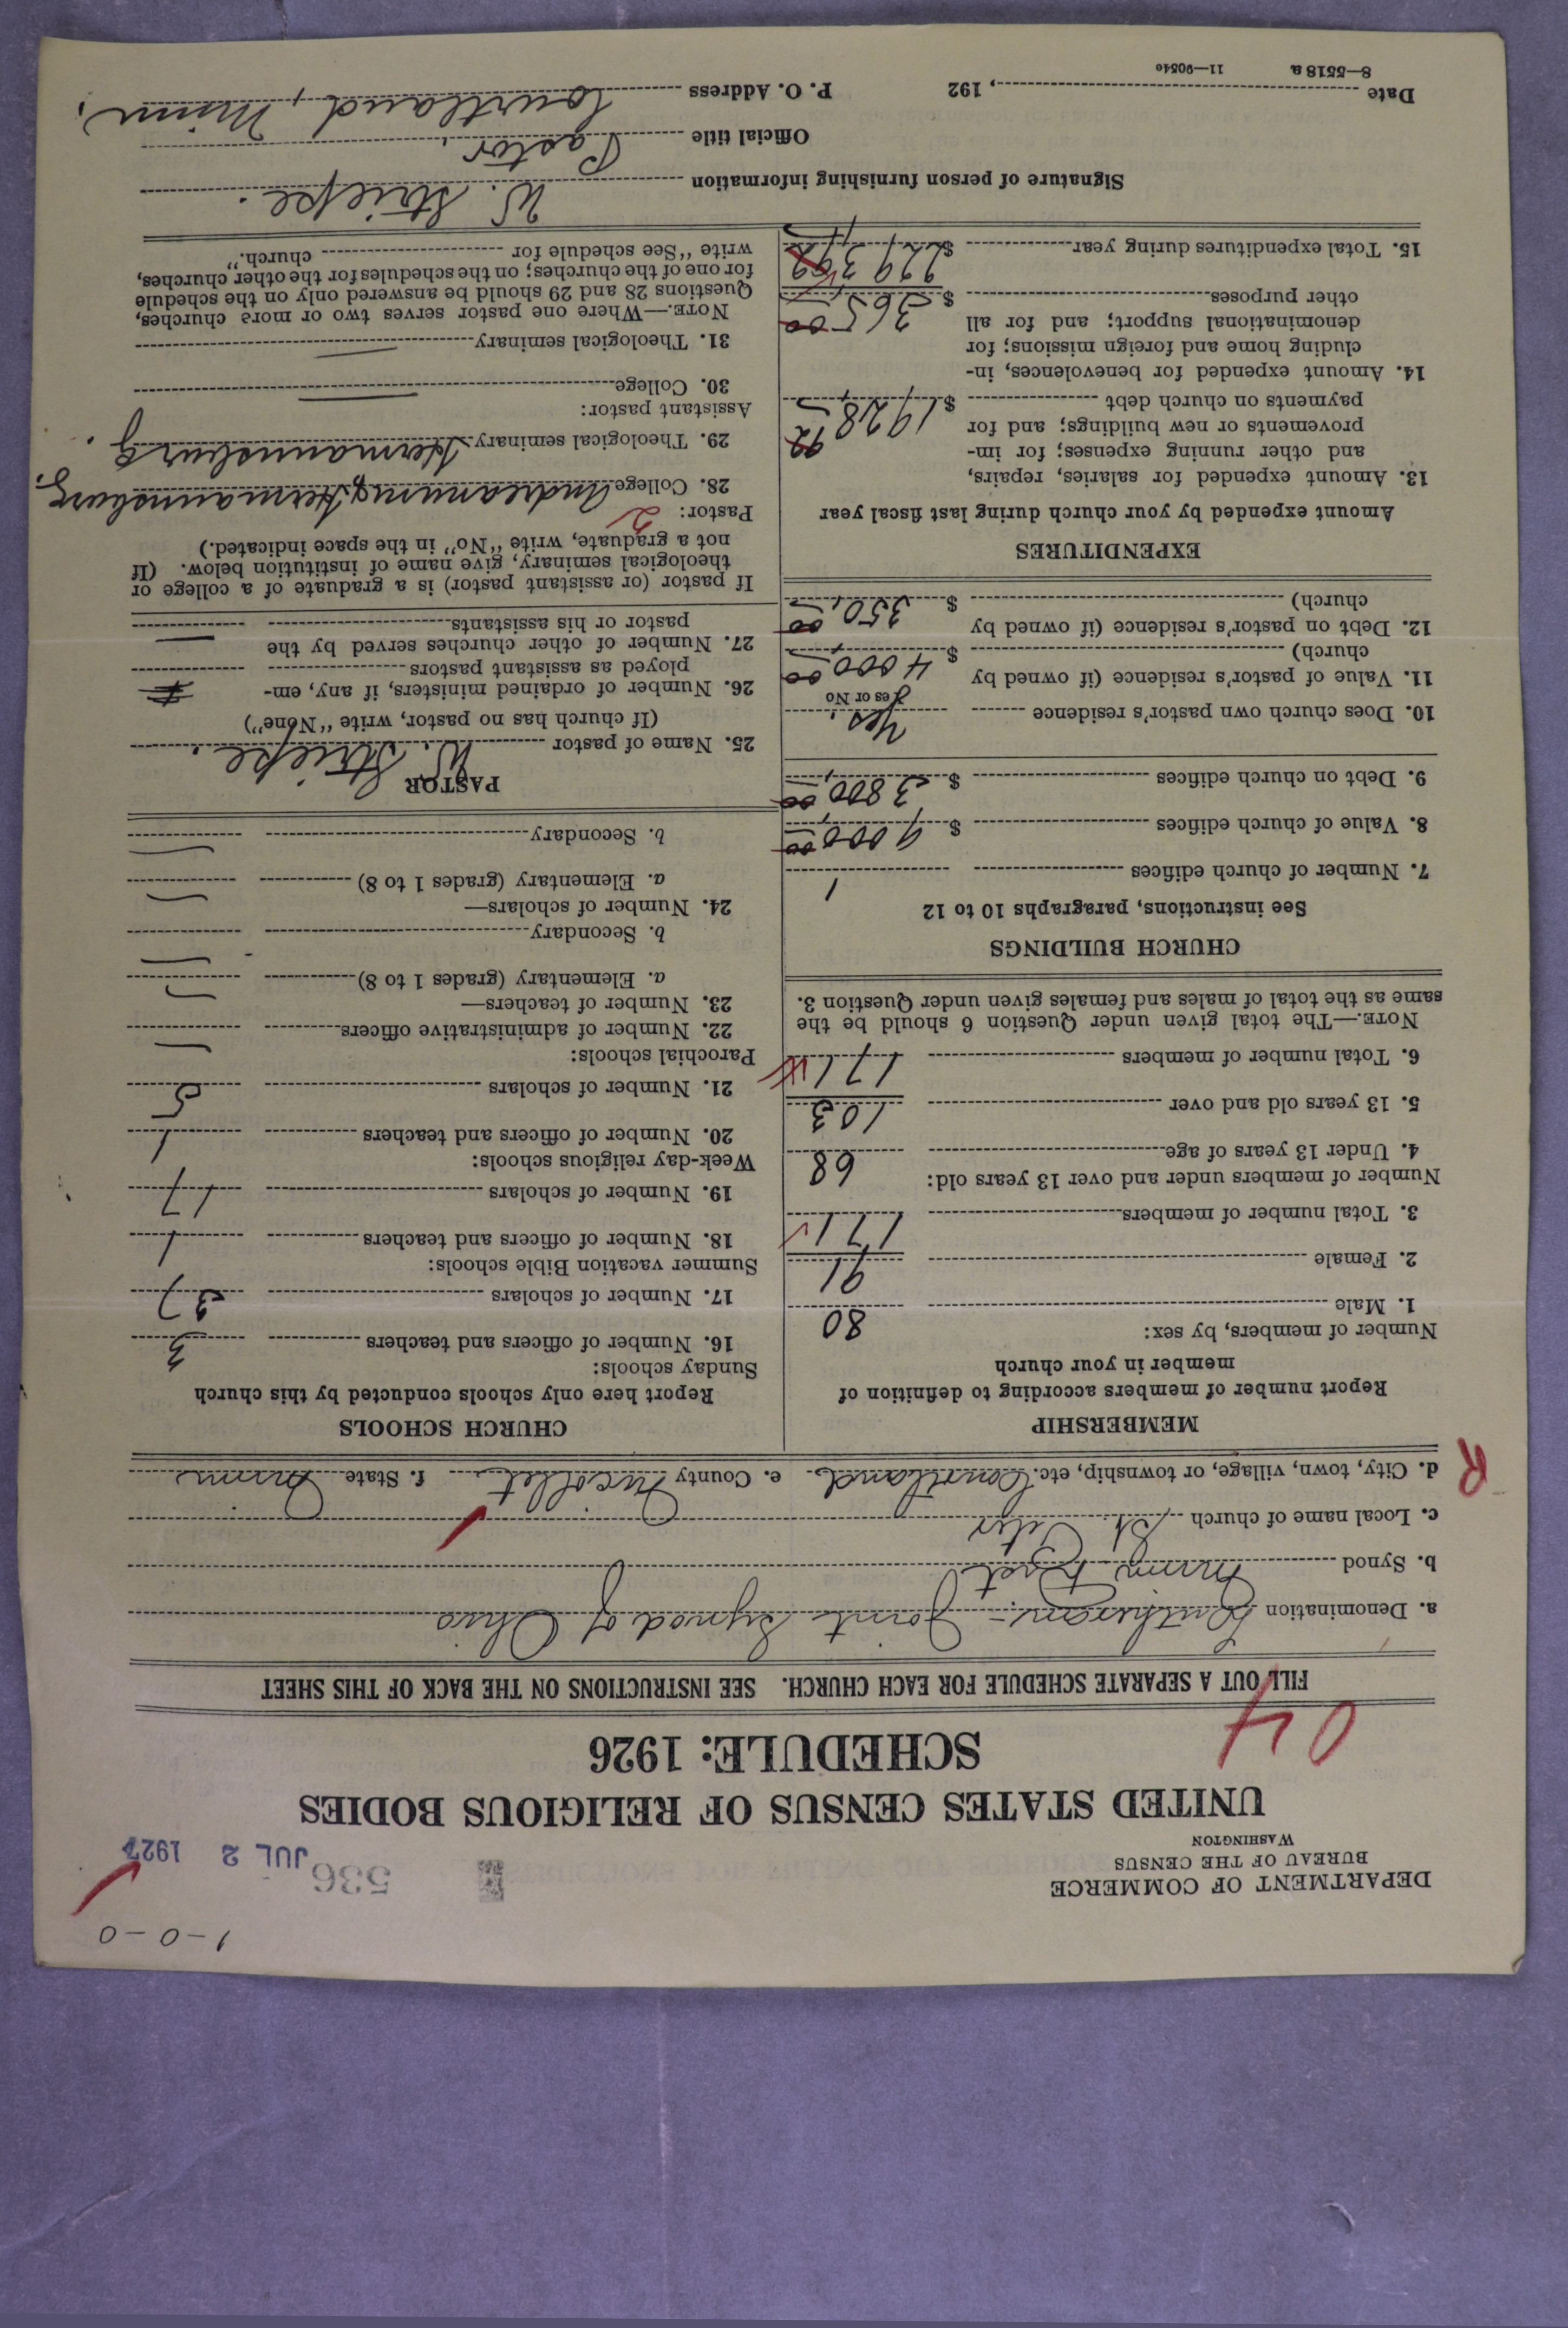 1-0-0
DEPARTMENT OF COMMERCE
BUREAU OF THE CENSUS
WASHINGTON
536 JUL 2 1927
UNITED STATES CENSUS OF RELIGIOUS BODIES
SCHEDULE: 1926
04
FILL OUT A SEPARATE SCHEDULE FOR EACH CHURCH. SEE INSTRUCTIONS ON THE BACK OF THIS SHEET
a. Denomination Lutheran - Joint Synod of Ohio
b. Synod Minn. Dist
c. Local name of church St. Peter
R
d. City, town, village, or township, etc. Courtland e. County Nicollet f. State Minn
MEMBERSHIP
Report number of members according to definition of
member in your church
Number of members, by sex:
1. Male 80
2. Female 91
3. Total number of members 171
Number of members under and over 13 years old:
4. Under 13 years of age 68
5. 13 years old and over 103
6. Total number of members 171
NOTE.—The total given under Question 6 should be the
same as the total of males and females given under Question 3.
CHURCH BUILDINGS
See instructions, paragraphs 10 to 12
7. Number of church edifices 1
8. Value of church edifices $ 9000,00
9. Debt on church edifices $ 3800,00
10. Does church own pastor's residence Yes.
Yes or No
11. Value of pastor's residence (if owned by
church) $ 4000,00
12. Debt on pastor's residence (if owned by
church) $ 350,00
EXPENDITURES
Amount expended by your church during last fiscal year
13. Amount expended for salaries, repairs,
and other running expenses; for im-
provements or new buildings; and for
payments on church debt $ 1928,92
14. Amount expended for benevolences, in-
cluding home and foreign missions; for
denominational support; and for all
other purposes $ 365,00
15. Total expenditures during year $ 2293,92
CHURCH SCHOOLS
Report here only schools conducted by this church
Sunday schools:
16. Number of officers and teachers 3
17. Number of scholars 37
Summer vacation Bible schools:
18. Number of officers and teachers 1
19. Number of scholars 17
Week-day religious schools:
20. Number of officers and teachers 1
21. Number of scholars 5
Parochial schools:
22. Number of administrative officers —
23. Number of teachers—
a. Elementary (grades 1 to 8) —
b. Secondary —
24. Number of scholars—
a. Elementary (grades 1 to 8) —
b. Secondary —
PASTOR
25. Name of pastor W. Striepe.
(If church has no pastor, write "None")
26. Number of ordained ministers, if any, em-
ployed as assistant pastors
27. Number of other churches served by the
pastor or his assistants —
If pastor (or assistant pastor) is a graduate of a college or
theological seminary, give name of institution below. (If
not a graduate, write "No" in the space indicated.)
Pastor: 2
28. College Andreanum, Hermannsburg.
29. Theological seminary Hermannsburg.
Assistant pastor:
30. College —
31. Theological seminary —
NOTE.—Where one pastor serves two or more churches,
Questions 28 and 29 should be answered only on the schedule
for one of the churches; on the schedules for the other churches,
write "See schedule for church."
Signature of person furnishing information W. Striepe.
Official title Pastor.
Date , 192 P. O. Address Courtland, Minn.
8—5518 a 11—9054e